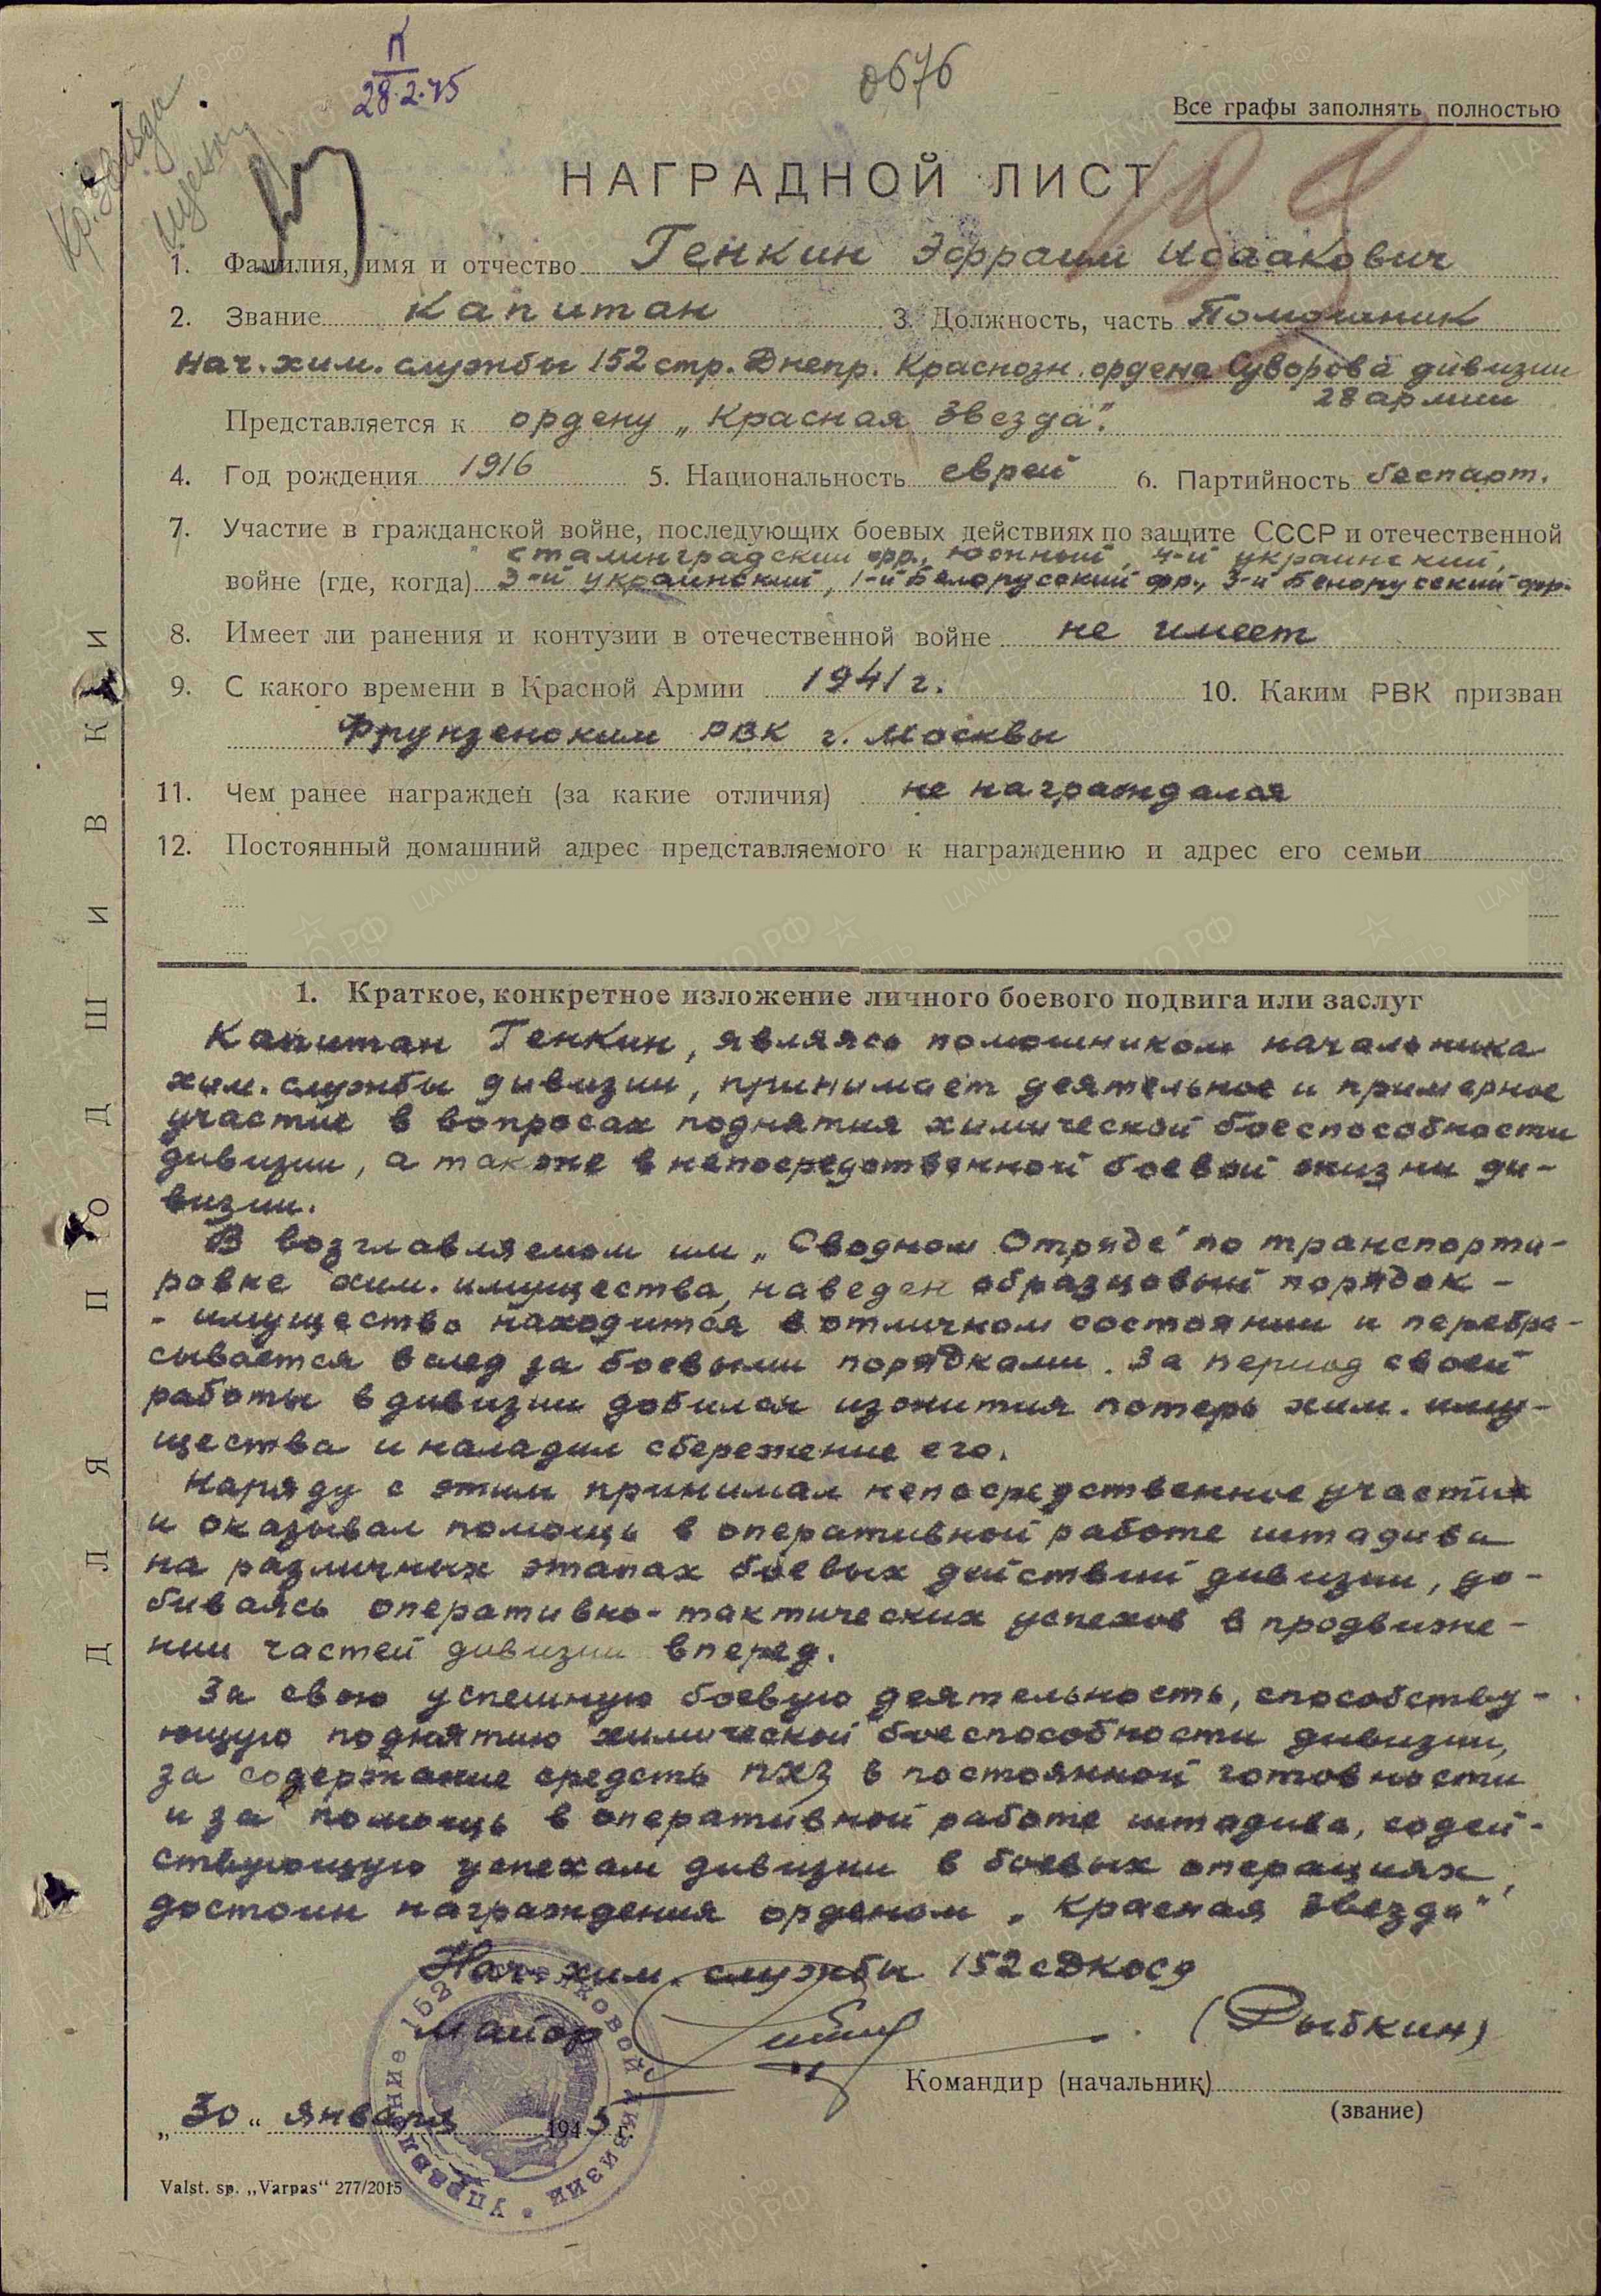 П
28.2.45
0676
Кр. звезда
Все графы заполнять полностью
НАГРАДНОЙ ЛИСТ
1. Фамилия, имя и отчество Генкин Эфраим Исаакович
2. Звание капитан 3. Должность, часть Помошник
нач. хим. службы 152 стр. Днепр. Краснозн. ордена Суворова дивизии
28 армии
Представляется к ордену „Красная Звезда".
4. Год рождения 1916 5. Национальность еврей 6. Партийность беспарт.
7. Участие в гражданской войне, последующих боевых действиях по защите СССР и отечественной
сталинградский фр., Южный, 4-й украинский,
войне (где, когда) 3-й украинский, 1-й Белорусский фр., 3-й Белорусский фр.
8. Имеет ли ранения и контузии в отечественной войне не имеет
9. С какого времени в Красной Армии 1941 г. 10. Каким РВК призван
Фрунзенским РВК г. Москвы
11. Чем ранее награжден (за какие отличия) не награждался
12. Постоянный домашний адрес представляемого к награждению и адрес его семьи
1. Краткое, конкретное изложение личного боевого подвига или заслуг
Капитан Генкин, являясь помошником начальника
хим. службы дивизии, принимает деятельное и примерное
участие в вопросах поднятия химической боеспособности
дивизии, а также в непосредственной боевой жизни ди-
визии.
В возглавляемом им „Сводном Отряде" по транспорти-
ровке хим. имущества, наведен образцовый порядок -
- имущество находится в отличном состоянии и перебра-
сывается вслед за боевыми порядками. За период своей
работы в дивизии добился изжития потерь хим. иму-
щества и наладил сбережение его.
Наряду с этим принимал непосредственное участие
и оказывал помощь в оперативной работе штадива
на различных этапах боевых действий дивизии, до-
биваясь оперативно-тактических успехов в продвиже-
нии частей дивизии вперед.
За свою успешную боевую деятельность, способству-
ющую поднятию химической боеспособности дивизии,
за содержание средств ПХЗ в постоянной готовности
и за помощь в оперативной работе штадива, содей-
ствующую успехам дивизии в боевых операциях,
достоин награждения орденом „Красная Звезда"
Нач. хим. службы 152 сДКОСд
майор (Рыбкин)
Командир (начальник)
(звание)
„30" января 1945 г.
Управление 152 стрелковой дивизии
Valst. sp. „Varpas" 277/2015
ДЛЯ ПОДШИВКИ
ЦАМО.РФ